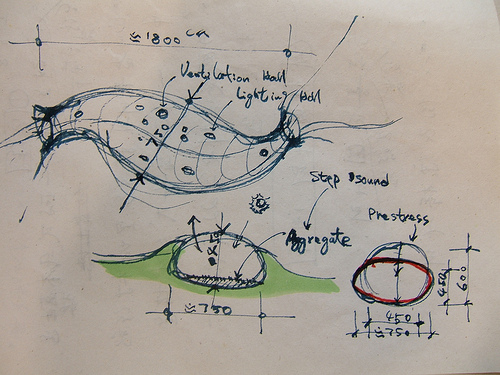 ≈1800 cm
Ventilation Hall
Lighting Hall
≈750
Step sound
Prestress
Aggregate
450
600
≈750
450
≈750